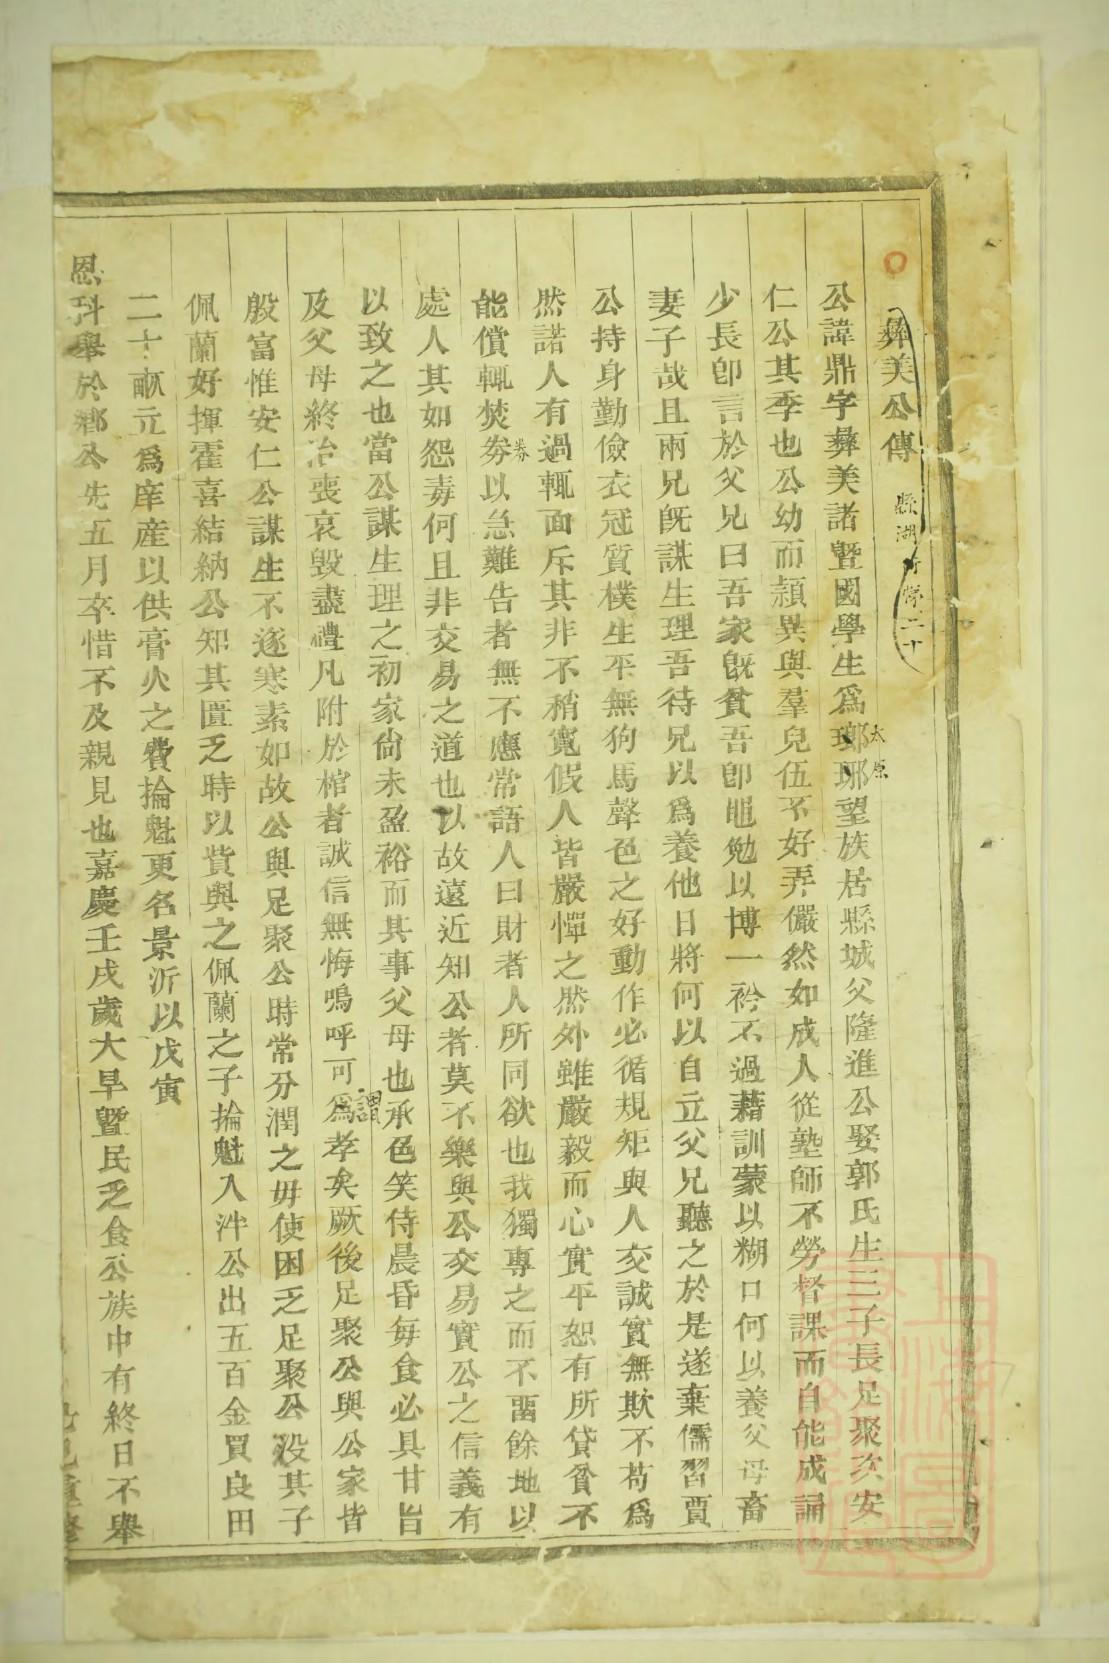 彝美公傳
公諱鼎字彝美諸暨國學生爲瑯琊望族居縣城父隆進公娶郭氏生三子長足聚次安
太原
仁公其季也公幼而頴異與羣兒伍不好弄儼然如成人從塾師不勞督課而自能成誦
少長卽言於父兄曰吾家旣貧吾卽黽勉以博一衿不過藉訓蒙以糊口何以養父母畜
妻子哉且兩兄旣謀生理吾待兄以爲養他日將何以自立父兄聽之於是遂棄儒習賈
公持身勤儉衣冠質樸生平無狗馬聲色之好動作必循規矩與人交誠實無欺不苟爲
然諾人有過輒面斥其非不稍寬假人皆嚴憚之然外雖嚴毅而心實平恕有所貸貧不
能償輒焚劵以急難告者無不應常語人曰財者人所同欲也我獨專之而不畱餘地以
券
處人其如怨毒何且非交易之道也以故遠近知公者莫不樂與公交易實公之信義有
以致之也當公謀生理之初家尙未盈裕而其事父母也承色笑侍晨昏每食必具甘旨
及父母終冶喪哀毀盡禮凡附於棺者誠信無悔嗚呼可爲孝矣厥後足聚公與公家皆
謂
殷富惟安仁公謀生不遂寒素如故公與足聚公時常分潤之毋使困乏足聚公没其子
佩蘭好揮霍喜結納公知其匱乏時以貲與之佩蘭之子掄魁入泮公出五百金買良田
二十畝立爲庠産以供膏火之費掄魁更名景沂以戊寅
恩科舉於鄕公先五月卒惜不及親見也嘉慶壬戌歲大旱暨民乏食公族中有終日不舉
上海圖書館藏